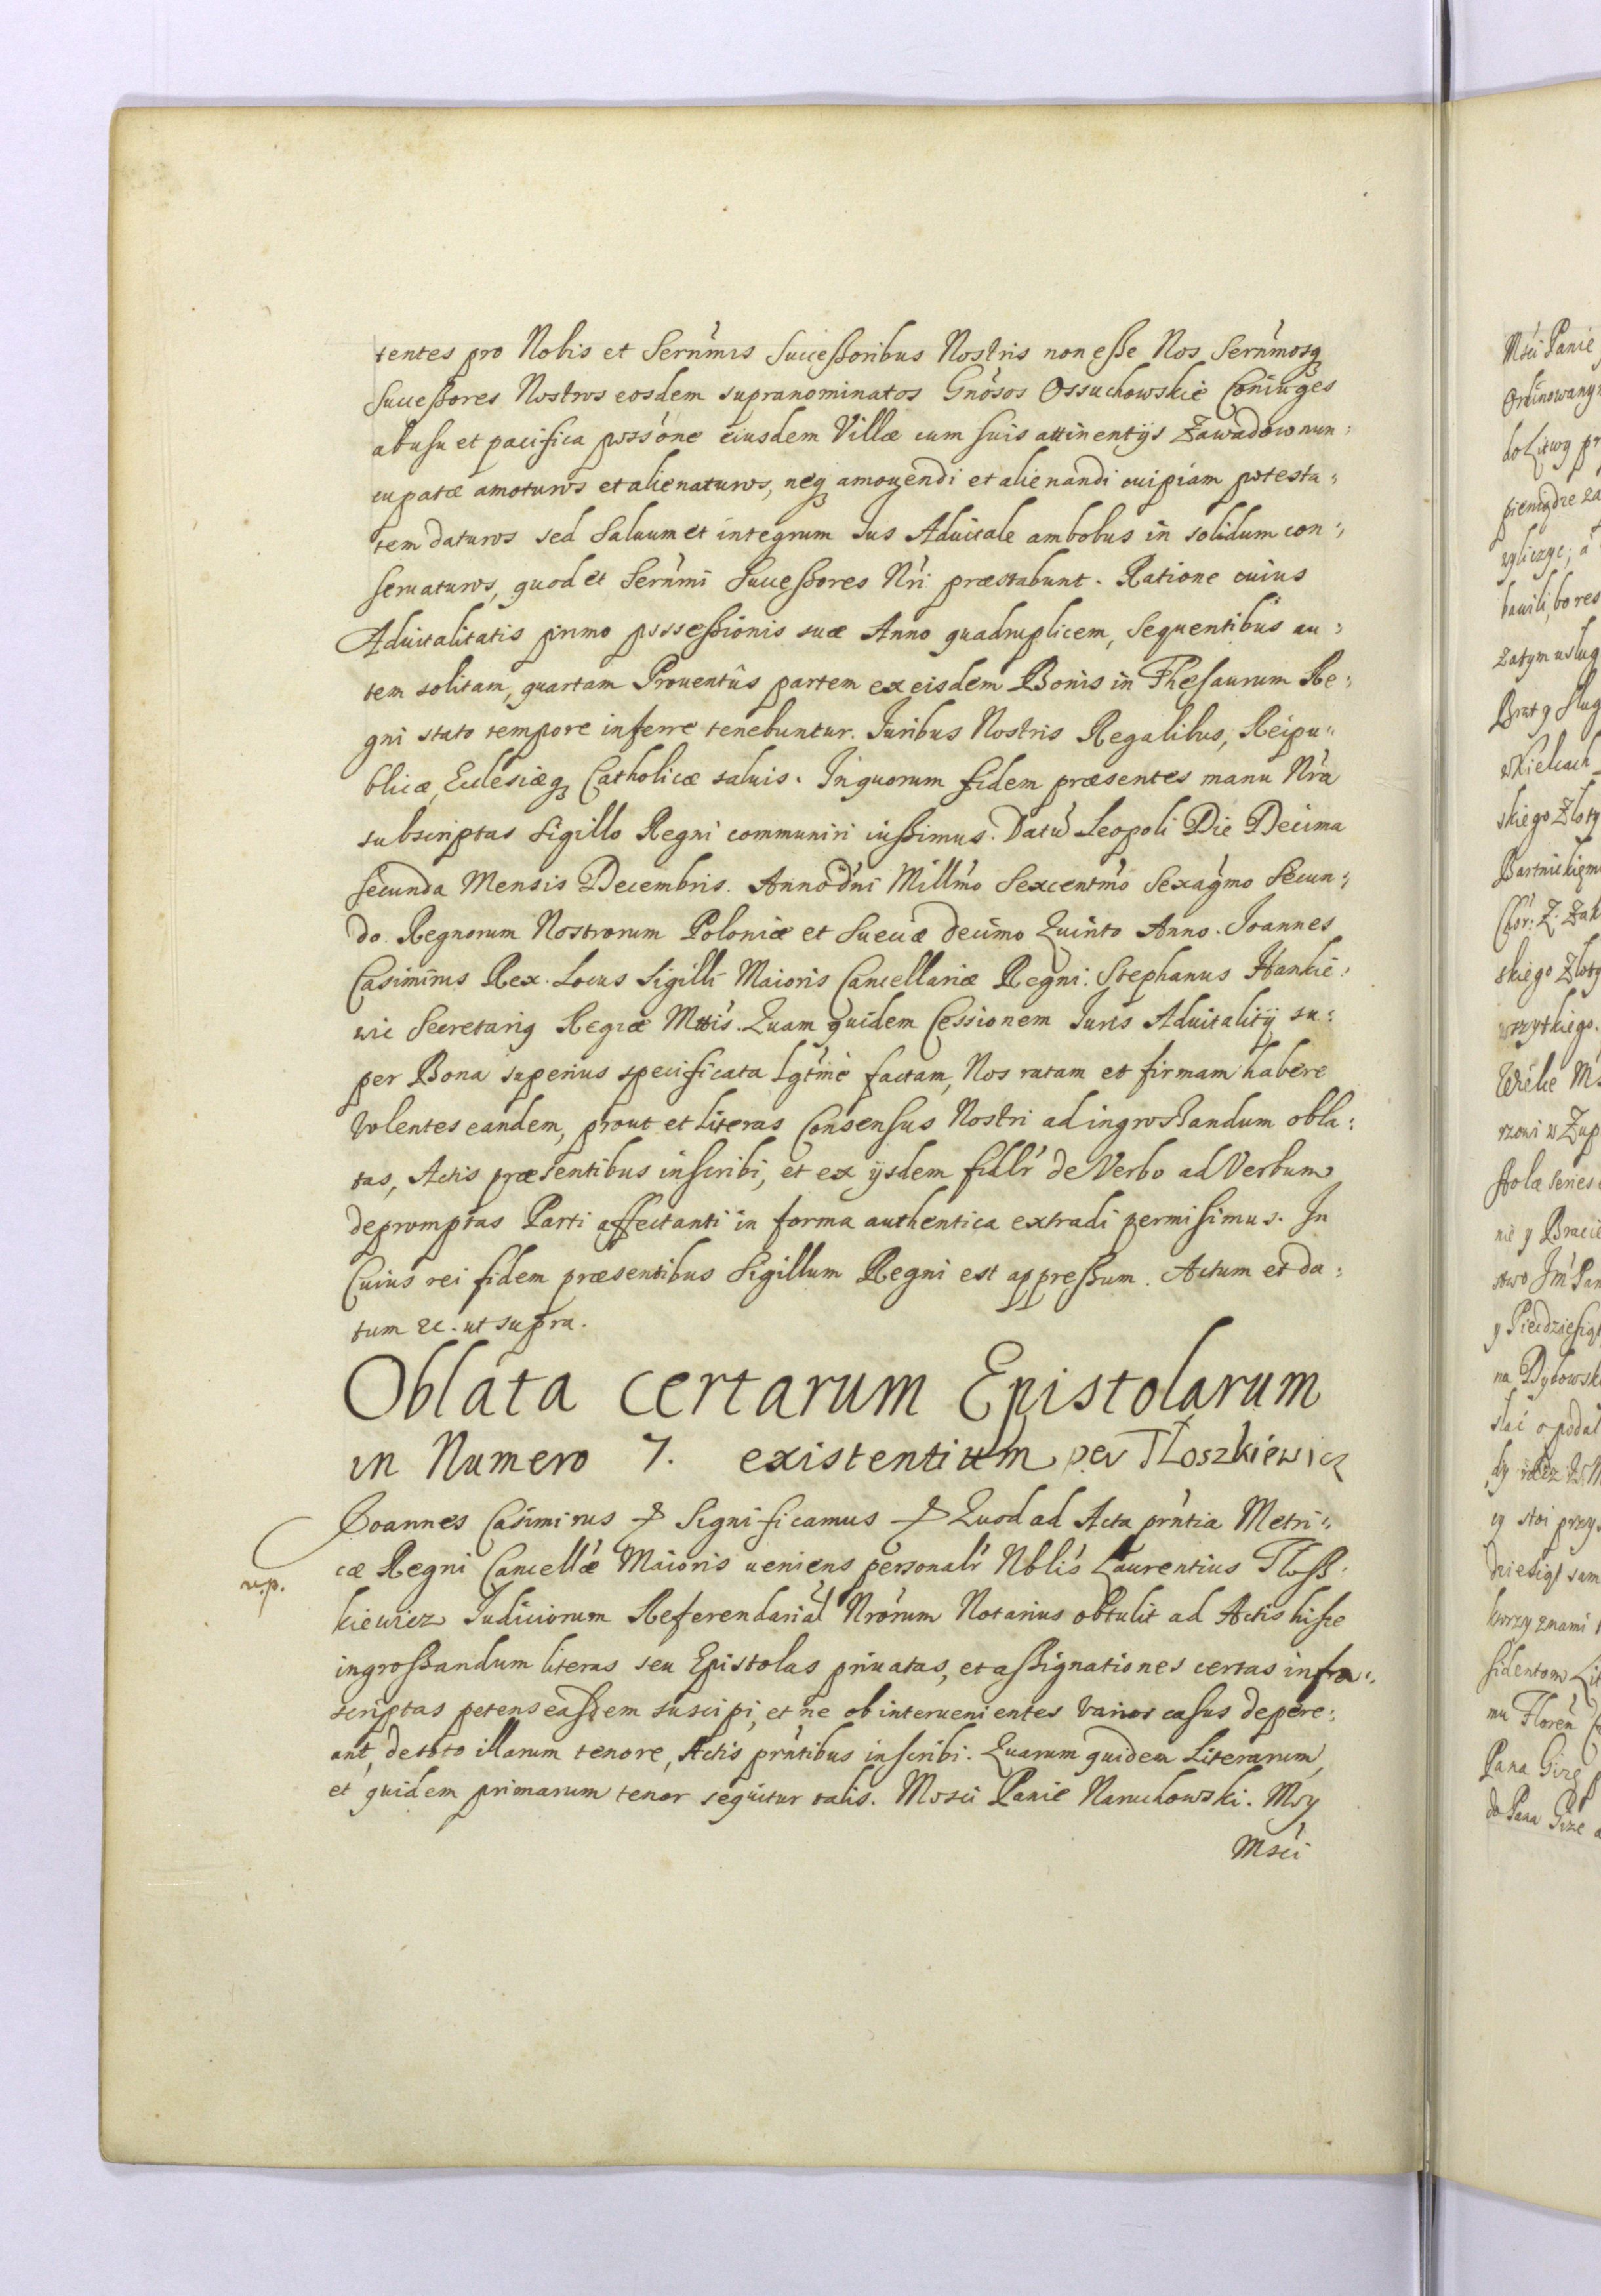 tentes pro Nobis et Sernm̃is Successoribus Nostris non esse Nos Sernm̃osq
Successores Nostros eosdem supranominatos Gnõsos Ossuchowskie Coniuges
ab usu et pacifica pssõne eiusdem Villæ cum suis attinentijs Zawadow nun:
cupatæ amoturos et alienaturos, neq amouendi et alienandi cuipiam potesta:
tem daturos sed Saluum et integrum Ius Aduitale ambobus in solidum con:
seruaturos, quod et Sernm̃i Successores Nr̃i præstabunt. Ratione cuius
Aduitalitatis primo possessionis suæ Anno quadruplicem, Sequentibus au:
tem solitam, quartam Prouentûs partem ex eisdem Bonis in Thesaurum Re:
gni stato tempore inferre tenebuntur. Iuribus Nostris Regalibus, Reipu:
blicæ, Ecclesiæq Catholicæ saluis. In quorum fidem præsentes manu Nr̃a
subscriptas Sigillo Regni communiri iussimus. Datũ Leopoli Die Decima
secunda Mensis Decembris. Anno Dñi Millm̃o Sexcentm̃o Sexagm̃o Secun:
do. Regnorum Nostrorum Poloniæ et Sueciæ decimo Quinto Anno. Joannes
Casimirus Rex. Locus Sigilli Maioris Cancellariæ Regni. Stephanus Hankie:
wic Secretarig Regiæ Mttis. Quam quidem Cessionem Juris Aduitalitij su:
per Bona superius specificata Lgtm̃e factam, Nos ratam et firmam habere
Volentes eandem, prout et Literas Consensus Nostri ad ingrossandum obla:
tas, Actis præsentibus inscribi, et ex ijsdem fidlr̃ de Verbo ad Verbum
depromptas Parti affectanti in forma authentica extradi permisimus. In
Cuius rei fidem præsentibus Sigillum Regni est appressum. Actum et da:
tum &c. ut supra.
Oblata certarum Epistolarum
in Numero 7. existentium per Tłoszkiewicz
Joannes Casimirus Significamus Quod ad Acta prñtia Metri:
cæ Regni Cancellæ Maioris ueniens personalr̃ Nblis Laurentius Tłosz:
np.
kiewicz Judiciorum Referendarial Nrõrum Notarius obtulit ad Actis hisce
ingrossandum literas seu Epistolas priuatas, et assignationes certas infra:
scriptas petens easdem suscipi, et ne ob interuenientes varios casus depere:
ant, de toto illarum tenore, Actis prñtibus inscribi. Quarum quidem Literarum,
et quidem primarum tenor sequitur talis. Mosci Panie Naruchowski. Moy
Msci
Msci Panie
Ordinowanym
do Litwy
pieniądze za
bawili, bo res
zatym uslug
Brat y Slug
w Kielcach
skiego Zloty
skiego Zloty
wszytkiego.
nie y Bracie
stwo Jm Pan
na Dybowsk
slać o podat
cy stoi przy
dziesiąt sam
mu Floren
Pana Gize
do Pana Gize a